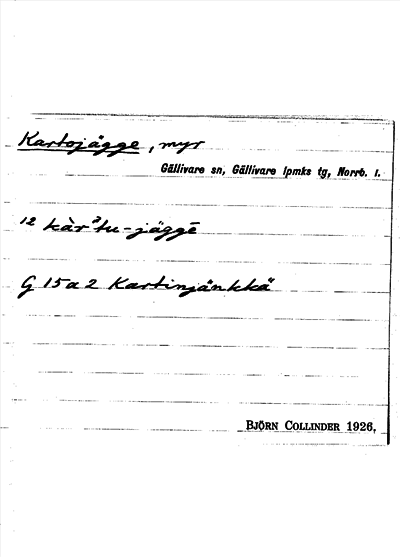 Kartojägge, myr
Gällivare sn, Gällivare lpmks tg, Norrb. l.
12 kàrᵊtu-jäggē
G 15 a 2 Kartinjänkkä
BJÖRN COLLINDER 1926.